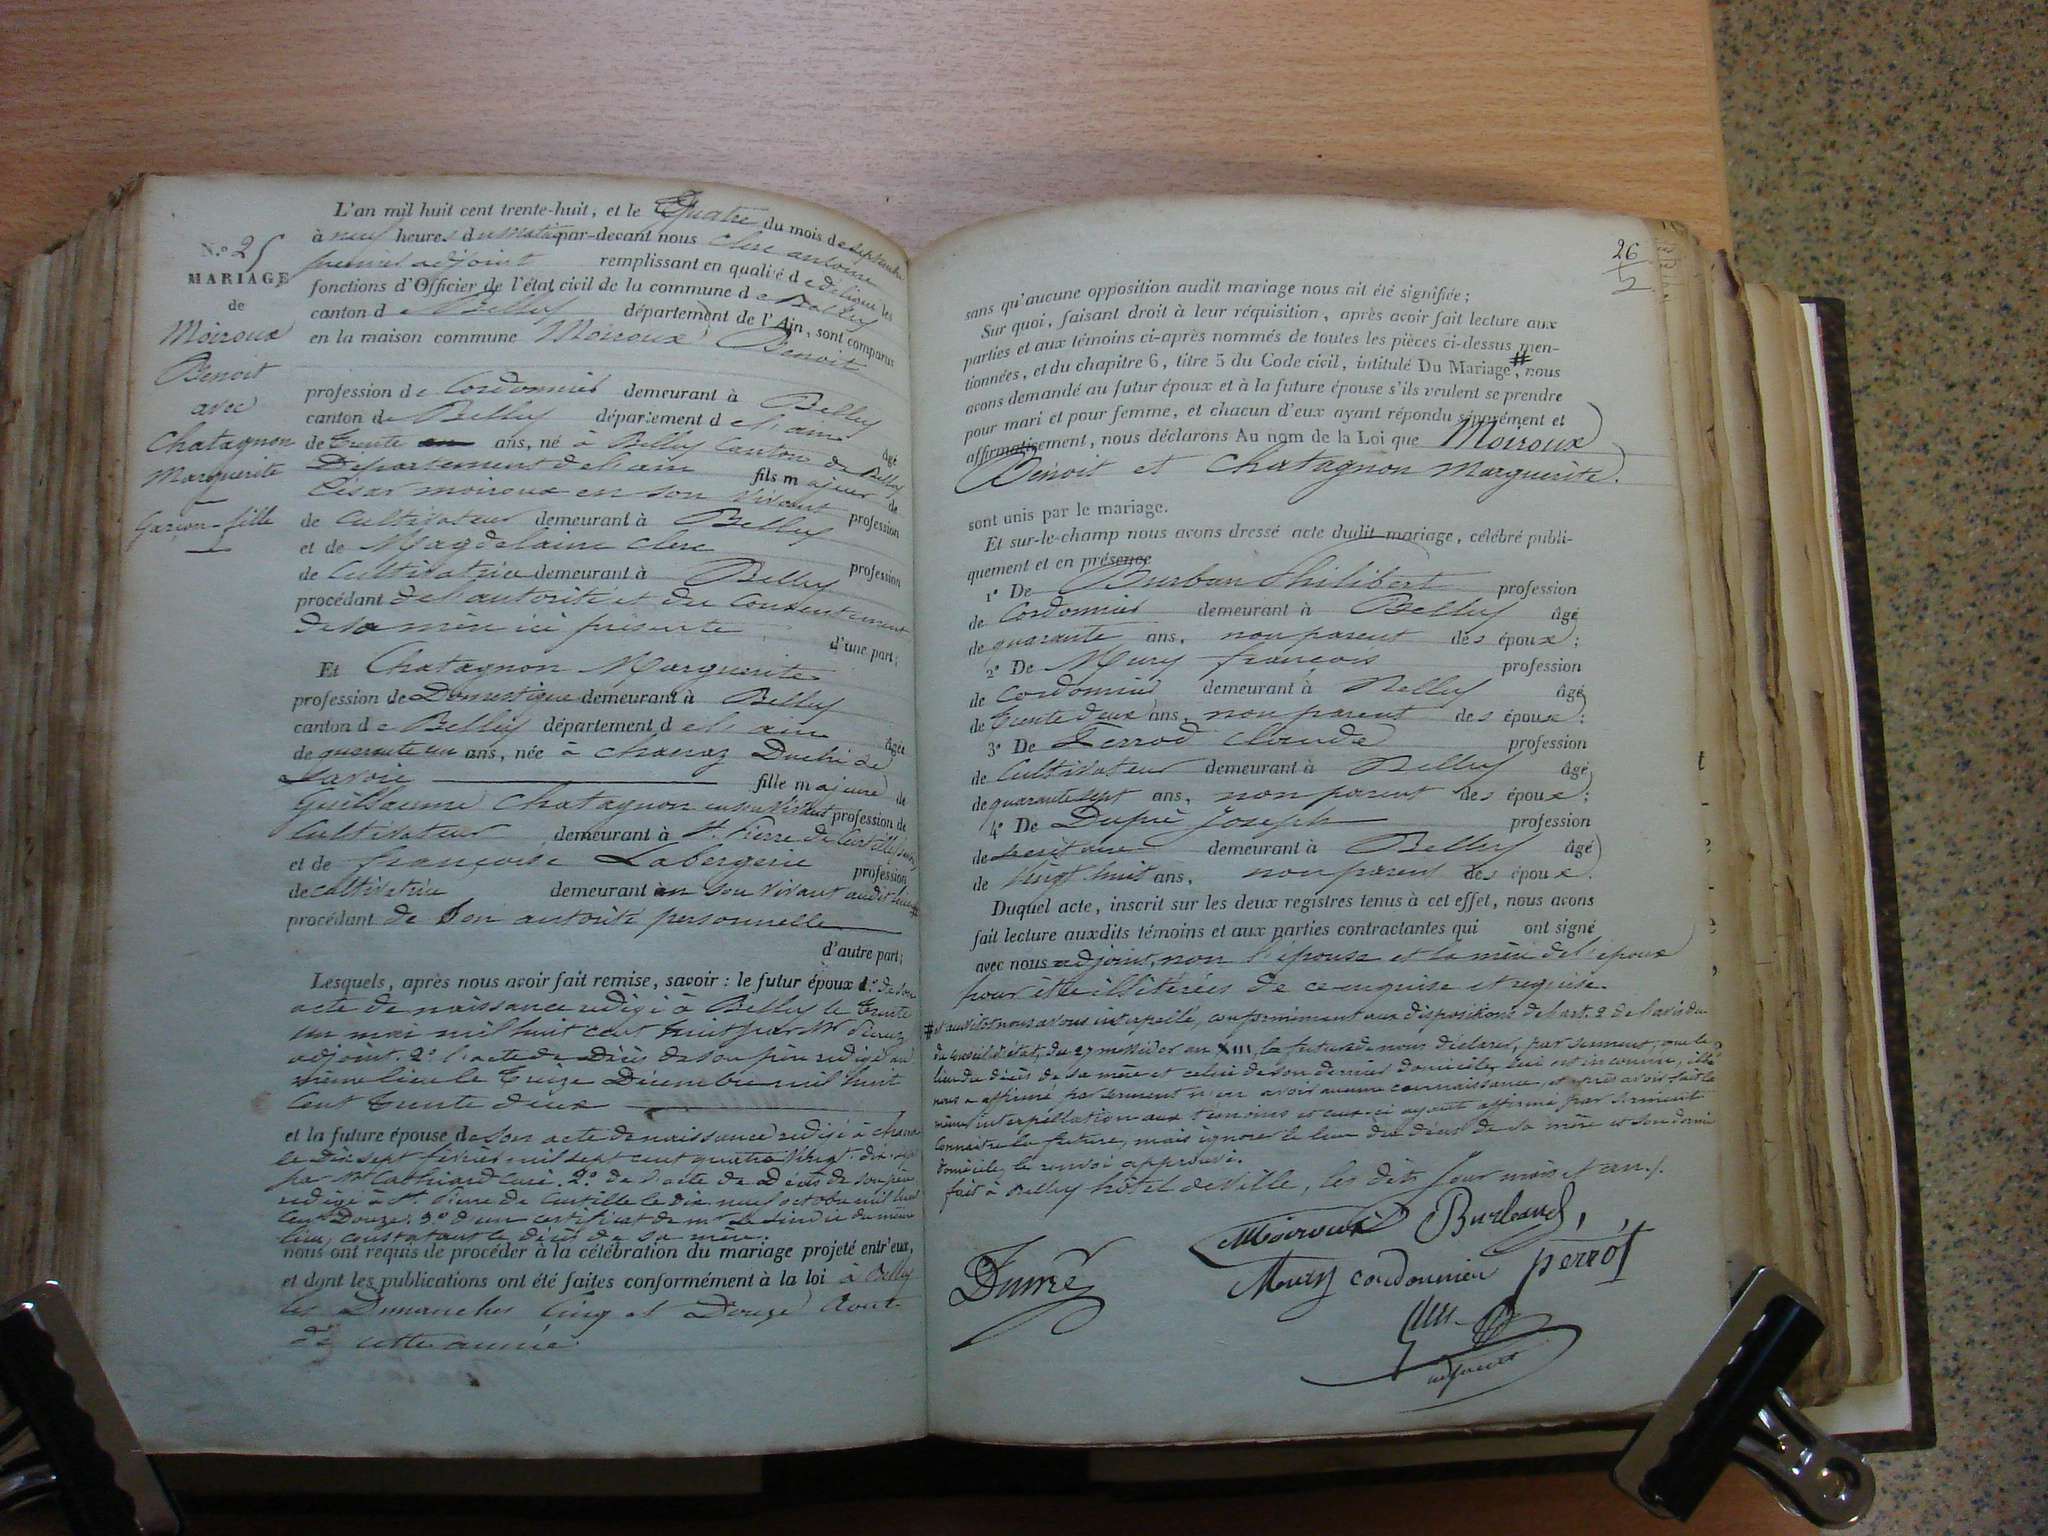 N.o 25
MARIAGE
de
Moiroux
Benoit
avec
Chatagnon
Marguerite
Garçon - fille
L'an mil huit cent trente-huit, et le Quatre du mois de septembre
à neuf heures du matin par-devant nous Clerc antoine
premier adjoint remplissant en qualité de délégué les
fonctions d'Officier de l'état civil de la commune de Belley
canton de Belley département de l'Ain, sont comparus
en la maison commune Moiroux Benoit
profession de Cordonnier demeurant à Belley
canton de Belley département de l'ain âgé
de trente ans, né à Belley Canton de Belley
Département de l'ain fils majeur de
César moiroux en son vivant profession
de Cultivateur demeurant à Belley
et de Magdelaine Clerc profession
de Cultivatrice demeurant à Belley
procédant de l'autorité et du Consentement
de sa mère ici présente d'une part;
Et Chatagnon Marguerite
profession de Domestique demeurant à Belley
canton de Belley département de l'ain âgée
de quarante un ans, née à Chanaz Duché de
Savoie fille majeure de
Guillaume Chatagnon en son vivant profession de
Cultivateur demeurant à St. Pierre de Curtille
et de françoise Labergerie profession
de cultivatrice demeurant en son vivant audit lieu
procédant de son autorité personnelle
d'autre part;
Lesquels, après nous avoir fait remise, savoir : le futur époux 1.o de son
acte de naissance rédigé à Belley le trente
un mai mil huit cent huit par Mr
adjoint. 2.o l'acte de Décès de son père rédigé au
même lieu le treize Décembre mil huit
Cent trente deux
et la future épouse de son acte de naissance rédigé à Chanaz
le Dix sept février mil sept cent quatre vingt dix-sept
par Mr curé. 2.o de l'acte de décès de son père
rédigé à St. Pierre de Curtille le dix neuf octobre mil huit
Cent Douze; 3.o d'un certificat de mr le Sindic du même
lieu, constatant le décès de sa mère.
nous ont requis de procéder à la célébration du mariage projeté entr'eux,
et dont les publications ont été faites conformément à la loi à Belley
les Dimanches Cinq et Douze Aout
de cette année
26
2
sans qu'aucune opposition audit mariage nous ait été signifiée;
Sur quoi, faisant droit à leur réquisition, après avoir fait lecture aux
parties et aux témoins ci-après nommés de toutes les pièces ci-dessus men-
tionnées, et du chapitre 6, titre 5 du Code civil, intitulé Du Mariage, # nous
avons demandé au futur époux et à la future épouse s'ils veulent se prendre
pour mari et pour femme, et chacun d'eux ayant répondu séparément et
affirmativement, nous déclarons Au nom de la Loi que Moiroux
Benoit et Chatagnon Marguerite.
sont unis par le mariage.
Et sur-le-champ nous avons dressé acte dudit mariage, célébré publi-
quement et en présence
1o De Burban Philibert profession
de Cordonnier demeurant à Belley âgé
de quarante ans, non parent des époux;
2o De Mury françois profession
de Cordonnier demeurant à Belley âgé
de trente deux ans, non parent des époux;
3o De Perrod Claude profession
de Cultivateur demeurant à Belley âgé
de quarante sept ans, non parent des époux;
4o De Dupré Joseph profession
de secrétaire demeurant à Belley âgé
de vingt huit ans, non parent des époux.
Duquel acte, inscrit sur les deux registres tenus à cet effet, nous avons
fait lecture auxdits témoins et aux parties contractantes qui ont signé
avec nous adjoint, non l'épouse et la mère de l'époux
pour être illitérées de ce enquise et requise.
# et aussitot nous avons interpellé, conformément aux dispositions de l'art. 2 de l'avis du
du Conseil d'état, du 27 messidor an XIII, la future de nous déclarer, par serment, que le
lieu du décès de sa mère et celui de son dernier domicile, lui est inconnu, elle
nous a affirmé par serment n'en avoir aucune connaissance, et après avoir fait la
même interpellation aux témoins et ceux-ci ayant affirmé par serment
Connaitre la future, mais ignorer le lieu du décès de sa mère et son dernier
domicile, le renvoi approuvé.
fait à Belley hôtel de Ville, les dits jour mois et an.
Moiroux Burband,
Moury cordonnier perrot
Dupré
Clerc
adjoint